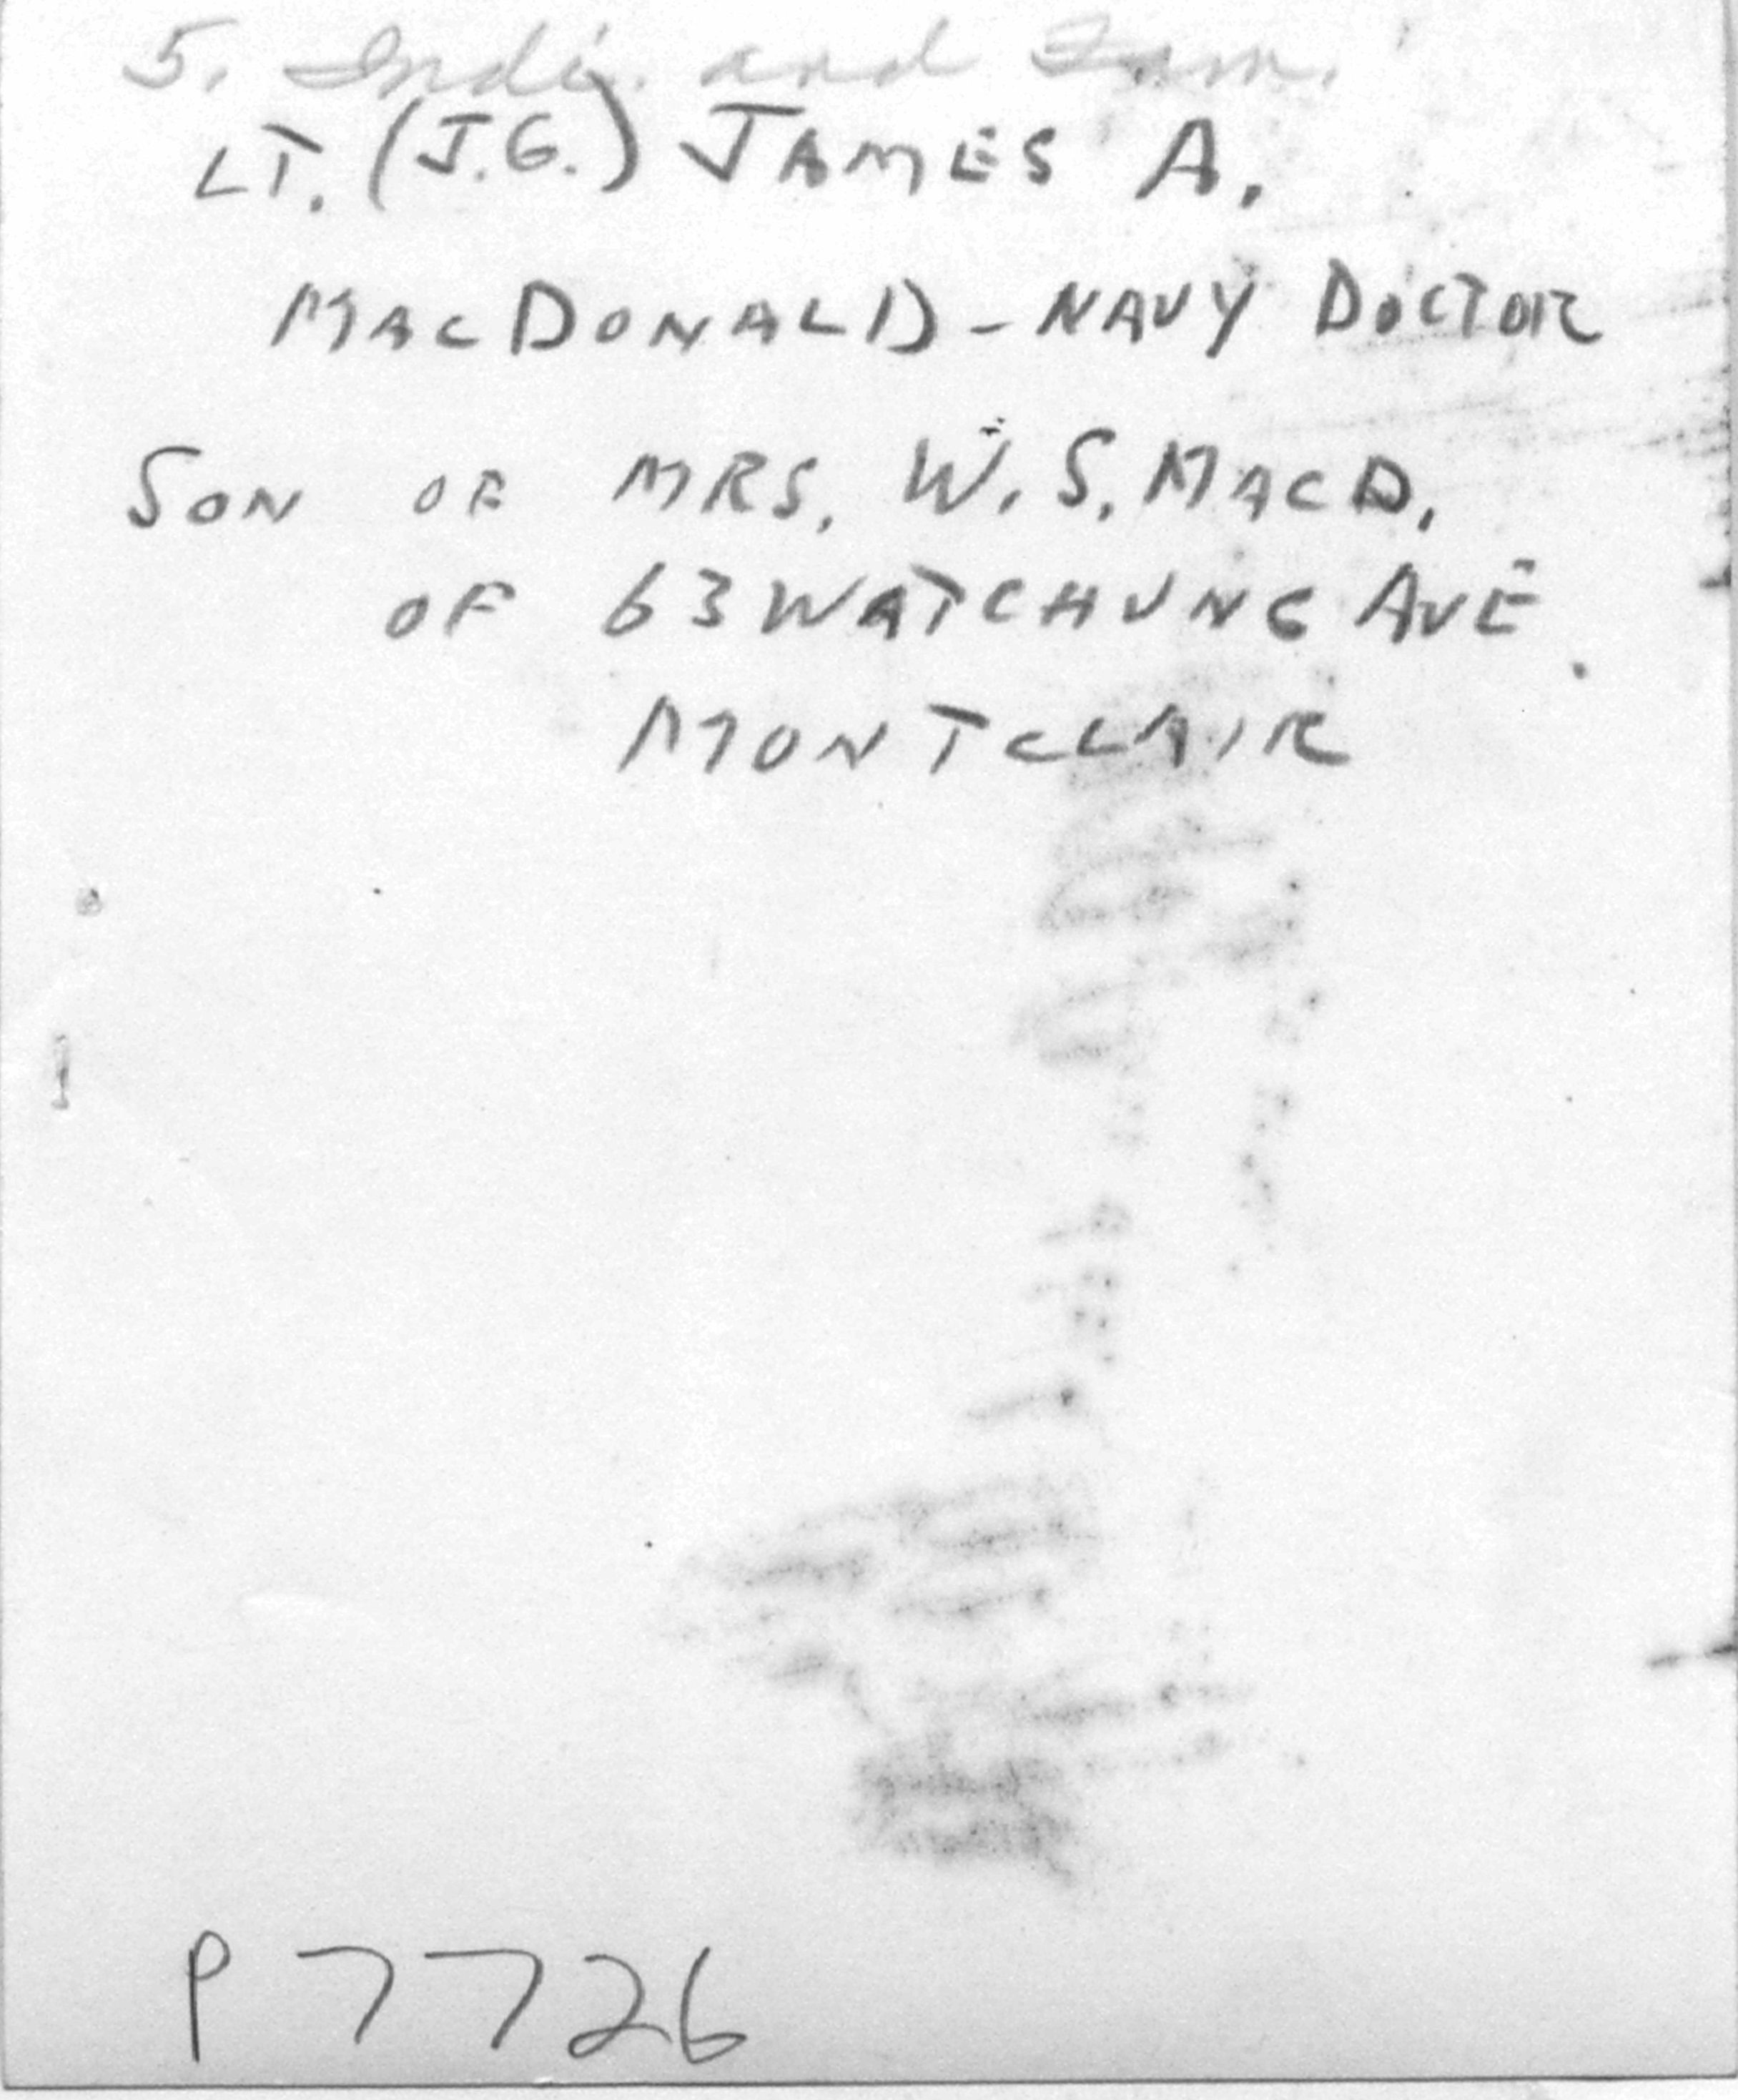 5. Indi. and Fam.
LT. (J.G.) JAMES A.
MACDONALD - NAVY DOCTOR
SON OF MRS. W. S. MACD.
OF 63 WATCHUNG AVE.
MONTCLAIR
P 7726